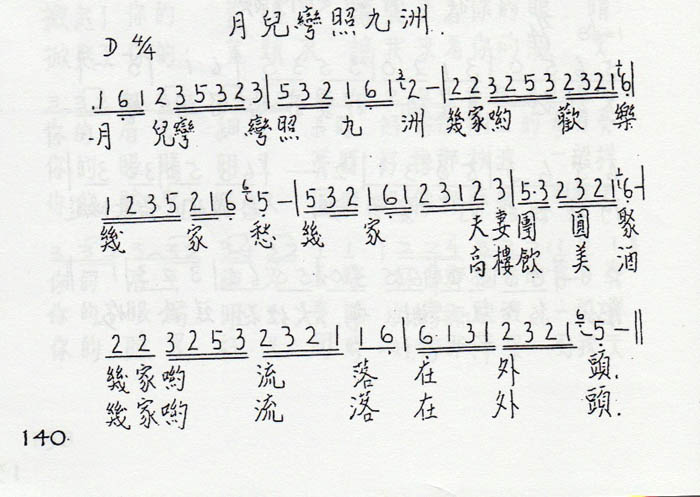 月兒彎照九洲.
D 4/4
1 6 1 2 3 5 3 2 3 | 5 3 2 1 6 1 3/2 - | 2 2 3 2 5 3 2 3 2 1 6 |
月 兒彎 彎照 九 洲 幾家喲 歡 樂
1 2 3 5 2 1 6 5 - | 5 3 2 1 6 | 2 3 1 2 3 | 5 3 2 3 2 1 6 - |
幾 家 愁 幾 家 夫妻團 圓 聚
高樓飲 美 酒
2 2 3 2 5 3 2 3 2 1 | 1 6 | 6 1 3 1 2 3 2 1 5 - ||
幾家喲 流 落 在 外 頭.
幾家喲 流 落 在 外 頭.
140